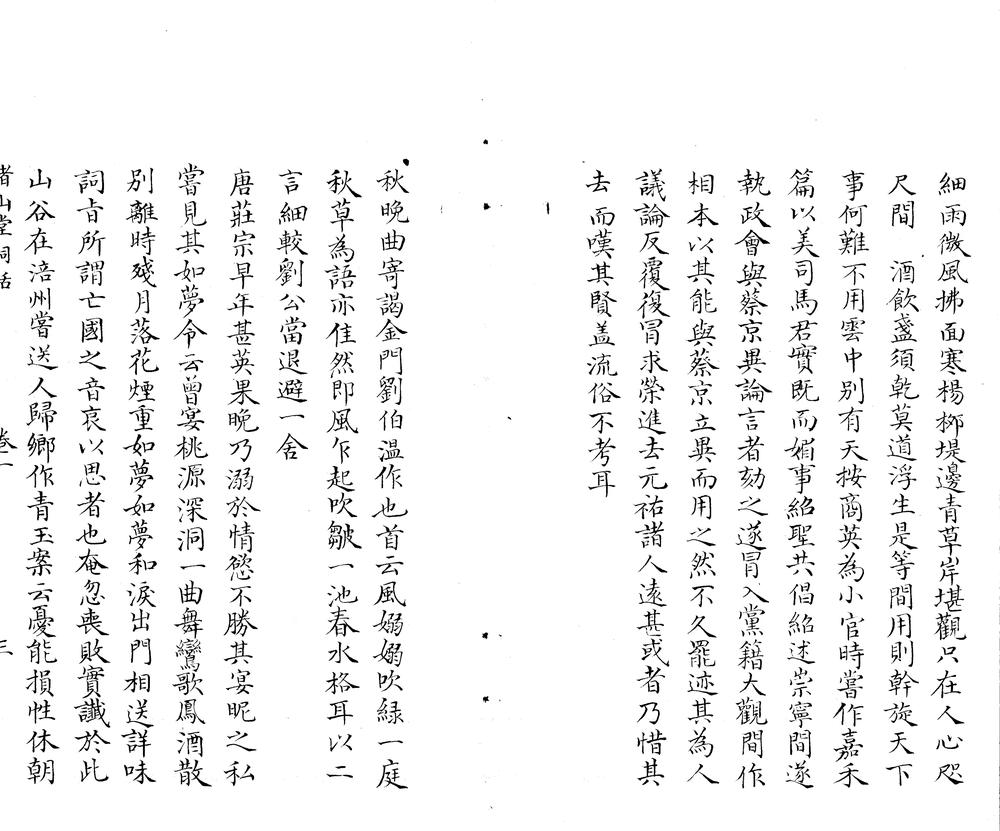 細雨微風拂面寒楊柳堤邊青草岸堪觀只在人心咫
尺間　酒飲盞須乾莫道浮生是等間用則幹旋天下
事何難不用雲中別有天按商英為小官時嘗作嘉禾
篇以美司馬君實既而媚事紹聖共倡紹述崇寧間遂
執政會與蔡京異論言者劾之遂冒入黨籍大觀間作
相本以其能與蔡京立異而用之然不久罷迹其為人
議論反覆復冒求榮進去元祐諸人遠甚或者乃惜其
去而嘆其賢盖流俗不考耳
秋晚曲寄謁金門劉伯温作也首云風嫋嫋吹緑一庭
秋草為語亦佳然即風乍起吹皺一池春水格耳以二
言細較劉公當退避一舍
唐莊宗早年甚英果晚乃溺於情慾不勝其宴昵之私
嘗見其如夢令云曾宴桃源深洞一曲舞鸞歌鳳酒散
別離時殘月落花煙重如夢如夢和淚出門相送詳味
詞旨所謂亡國之音哀以思者也奄忽喪敗實讖於此
山谷在涪州嘗送人歸鄉作青玉案云憂能損性休朝
渚山堂詞話　卷一　三